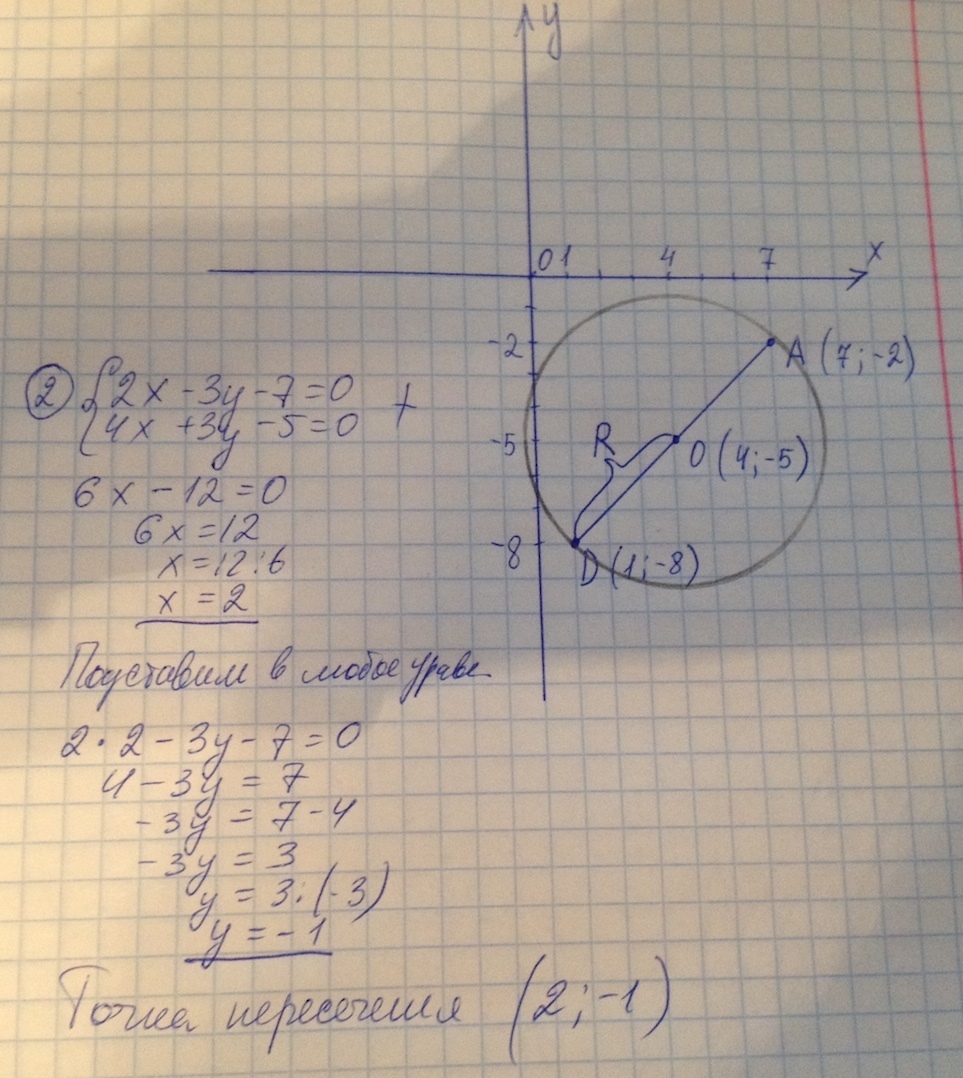 y
0 1 4 7 x
-2
A (7; -2)
-5
R
O (4; -5)
-8
D (1; -8)
② { 2x - 3y - 7 = 0
4x + 3y - 5 = 0 +
6x - 12 = 0
6x = 12
x = 12 : 6
x = 2
Подставим в любое уравн.
2 · 2 - 3y - 7 = 0
4 - 3y = 7
-3y = 7 - 4
-3y = 3
y = 3 : (-3)
y = -1
Точка пересечения (2; -1)